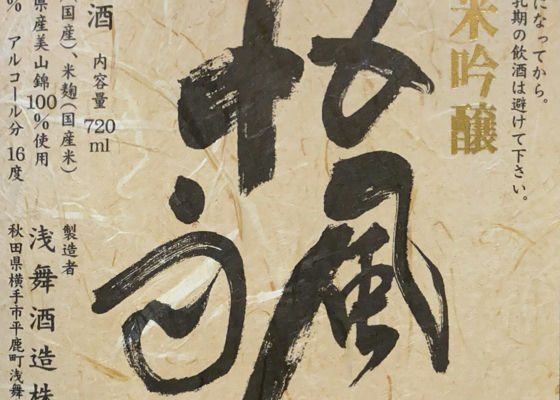 になってから。
乳期の飲酒は避けて下さい。
米吟醸
風
酒 内容量 720ml
(国産)、米麹(国産米)
県産美山錦100%使用
% アルコール分 16度
製造者
浅舞酒造株
秋田県横手市平鹿町浅舞